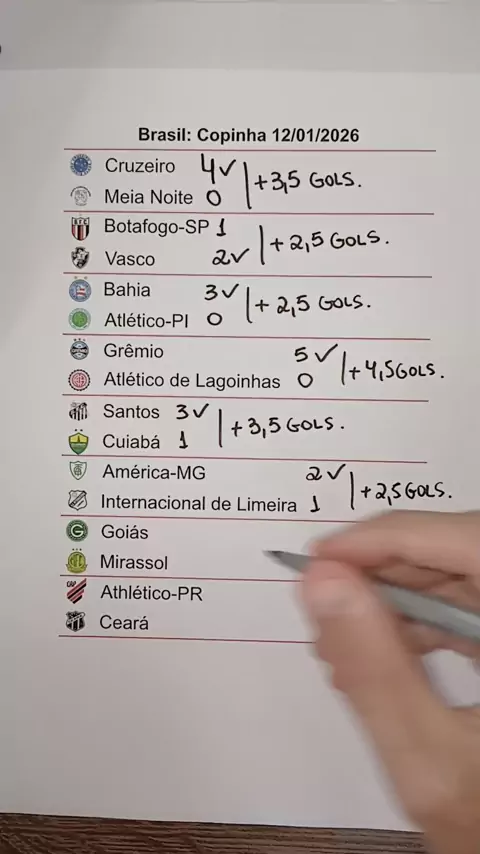 Brasil: Copinha 12/01/2026
Cruzeiro 4✓
+3,5 GOLS.
Meia Noite 0
Botafogo-SP 1
+2,5 GOLS.
Vasco 2✓
Bahia 3✓
+2,5 GOLS.
Atlético-PI 0
Grêmio 5✓
+4,5 GOLS.
Atlético de Lagoinhas 0
Santos 3✓
+3,5 GOLS.
Cuiabá 1
América-MG 2✓
+2,5 GOLS.
Internacional de Limeira 1
Goiás
Mirassol
Athlético-PR
Ceará